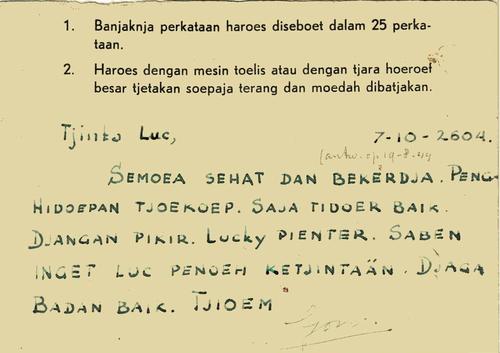 1. Banjaknja perkataan haroes diseboet dalam 25 perka-
taan.
2. Haroes dengan mesin toelis atau dengan tjara hoeroef
besar tjetakan soepaja terang dan moedah dibatjakan.
Tjinta Luc,
7-10-2604.
(antw. op 19-8-44
SEMOEA SEHAT DAN BEKERDJA. PENG-
HIDOEPAN TJOEKOEP. SAJA TIDOER BAIK.
DJANGAN PIKIR. LUCKY PIENTER. SABEN
INGET LUC PENOEH KETJINTAÄN. DJAGA
BADAN BAIK. TJIOEM